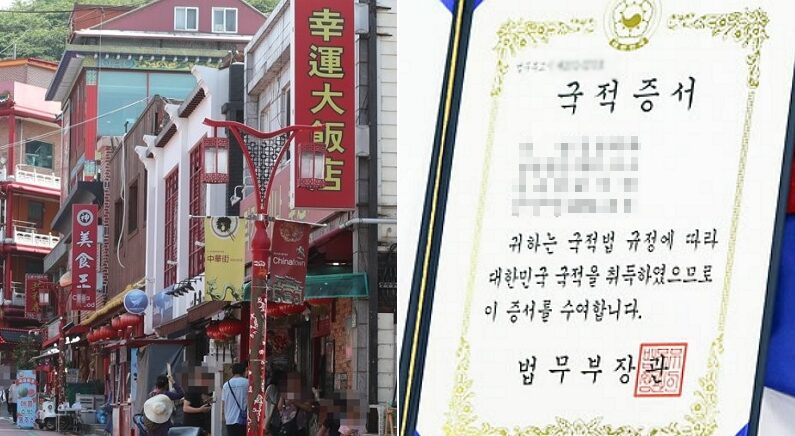 幸運大飯店
美食王
中華街
Chinatown
국적증서
귀하는 국적법 규정에 따라
대한민국 국적을 취득하였으므로
이 증서를 수여합니다.
법무부장관